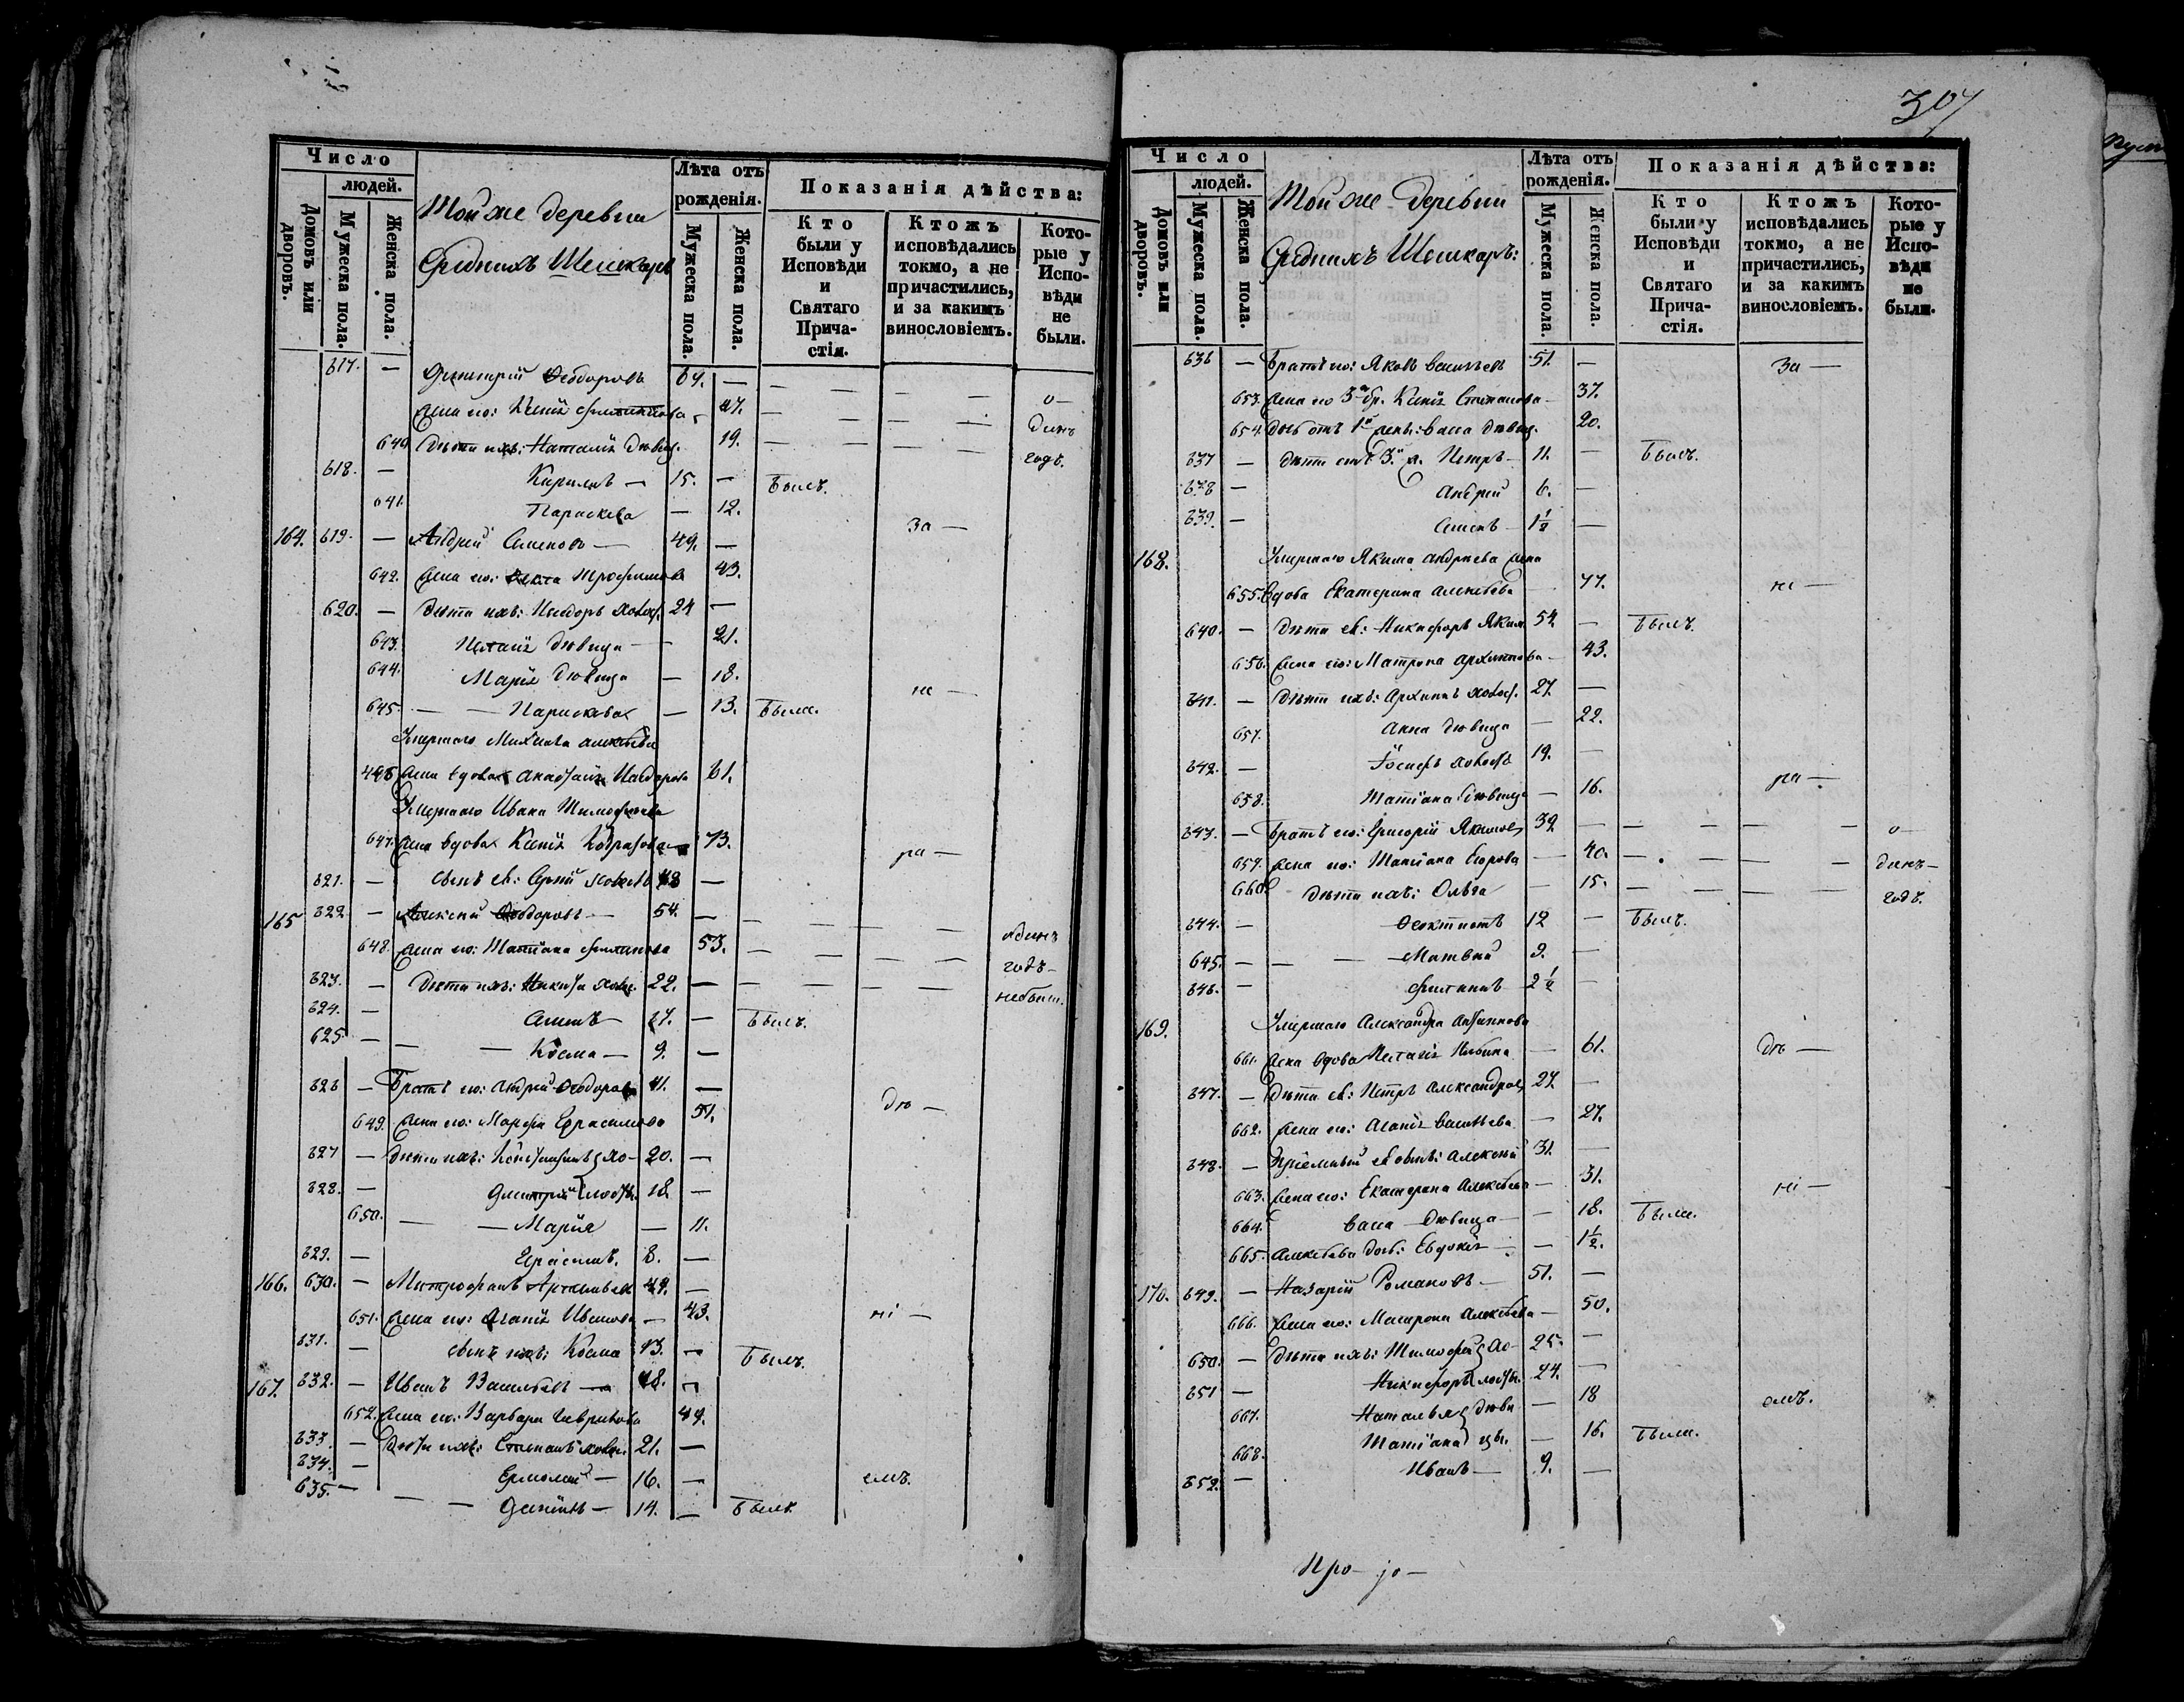 307
Число
людей.
Домовъ или дворовъ.
Мужеска пола.
Женска пола.
Той же деревни
Среднихъ Шешкаръ
Лѣта отъ рожденія.
Мужеска пола.
Женска пола.
Показанія дѣйства:
Кто были у Исповѣди и Святаго Прича-стія.
Ктожъ исповѣдались токмо, а не причастились, и за какимъ винословіемъ.
Кото-рые у Испо-вѣди не были.
617. — Димитрій Ѳеодоровъ 64. — — — — — о—
Жена его: Ксенія 47. — — — — динъ
640. Дѣти ихъ: Наталія дѣвиц. 19. — — — — годъ.
618. — Кирилъ — 15. — Былъ.
641. Параскева — 12. За —
164. 619. — Андрей Семеновъ — 49. —
642. Жена его: Трофимова 43.
620. — Дѣти ихъ: холос. 24 —
643. Пелагія дѣвица — 21.
644. Марія дѣвица — 18. не —
645. — — Параскева — 13. Была.
Умершаго Михаила Алексѣева
Жена вдова Анастасія 61.
Умершаго Ивана Тимофеева
647. Жена вдова Ксенія 73. ра —
621. — Сынъ ея: Сергій —
165 622. — Алексій Ѳеодоровъ — 54. — — — — — одинъ
648. Жена его: Татіана Филипова 53. — — — — годъ —
623. — Дѣти ихъ: Никита холос. 22. — — — — — небыли.
624. — — Былъ.
625. — — — Косма — 9. —
626 — Братъ его: Андрей Ѳеодоровъ 41. — дѣ —
649. Жена его: Марфа Герасимова 51.
627 — Дѣти ихъ: Константинъ хо— 20. —
628. — Димитрій лосты. 18 —
650. — — Марія — 11.
629. — Герасимъ. 8. —
166. 630. — Митрофанъ Артемьевъ 49. —
651. Жена его: Агапія Иванова — 43. ні —
631. — Сынъ ихъ: Косма 13. — Былъ.
167. 632. — Иванъ Васильевъ — 48. —
652. Жена его: Варвара Гаврилова 49.
633. — Дѣти ихъ: Степанъ холос. 21. —
634. — Ермолай — 16. — емъ.
635. — — — — 14. — Былъ.
Число
людей.
Домовъ или дворовъ.
Мужеска пола.
Женска пола.
Той же деревни
Среднихъ Шешкаръ:
Лѣта отъ рожденія.
Мужеска пола.
Женска пола.
Показанія дѣйства:
Кто были у Исповѣди и Святаго Прича-стія.
Ктожъ исповѣдались токмо, а не причастились, и за какимъ винословіемъ.
Кото-рые у Испо-вѣди не были.
636 — Братъ его: Яковъ Васильевъ 51. — За —
653. Жена его 3 бр. Ксенія Степанова — 37.
654. Дочь отъ 1й жены: Васа дѣвиц. 20.
637 — Дѣти отъ 3й ж. Петръ — 11. — Былъ.
638 — Андрей 6. —
639. — — 1½ —
168. Умершаго Якима Андреева жена
655. Вдова Екатерина Алексѣева 77. не —
640. — Дѣти ея: Никифоръ Яким. 54 — Былъ.
656. Жена его: Матрона Архипова — 43.
641. — Дѣти ихъ: Архипъ холос. 27. —
657. Анна дѣвица — 22.
642. — Іосифъ холостъ 19. — ра —
658. Татіана дѣвица — 16.
643. — Братъ его: Григорій Якимовъ 39 — — — — о—
659. Жена его: Татіана Егорова — 40. — — — динъ—
660. Дѣти ихъ: Ольга — 15. — — — — годъ.
644. — Ѳеоктистъ 12 — Былъ.
645. — — — Матвей 9. —
646. — Филипъ 2½ —
169. Умершаго Александра
661. Жена вдова Пелагія — 61. дѣ —
647. — Дѣти ея: Петръ Александровъ 27. —
662. Жена его: Агапія Васильева — 27.
648. — Пріемный ея сынъ: Алексій 31. —
663. Жена его: Екатерина Алексѣева — 31. ні —
664. Васа — дѣвица — — 18. Была.
665. Алексѣева доч: Евдокія — — 1½.
170. 649. — Назарій Романовъ — 51. —
666. Жена его: Матрона Алексѣева — 50.
650. — Дѣти ихъ: Тимофей хо— 25. —
651 — Никифоръ лосты. 24. — емъ.
667. Наталья дѣви — 18
668. Татіана цы. — 16. Были.
652. — Иванъ — 9. —